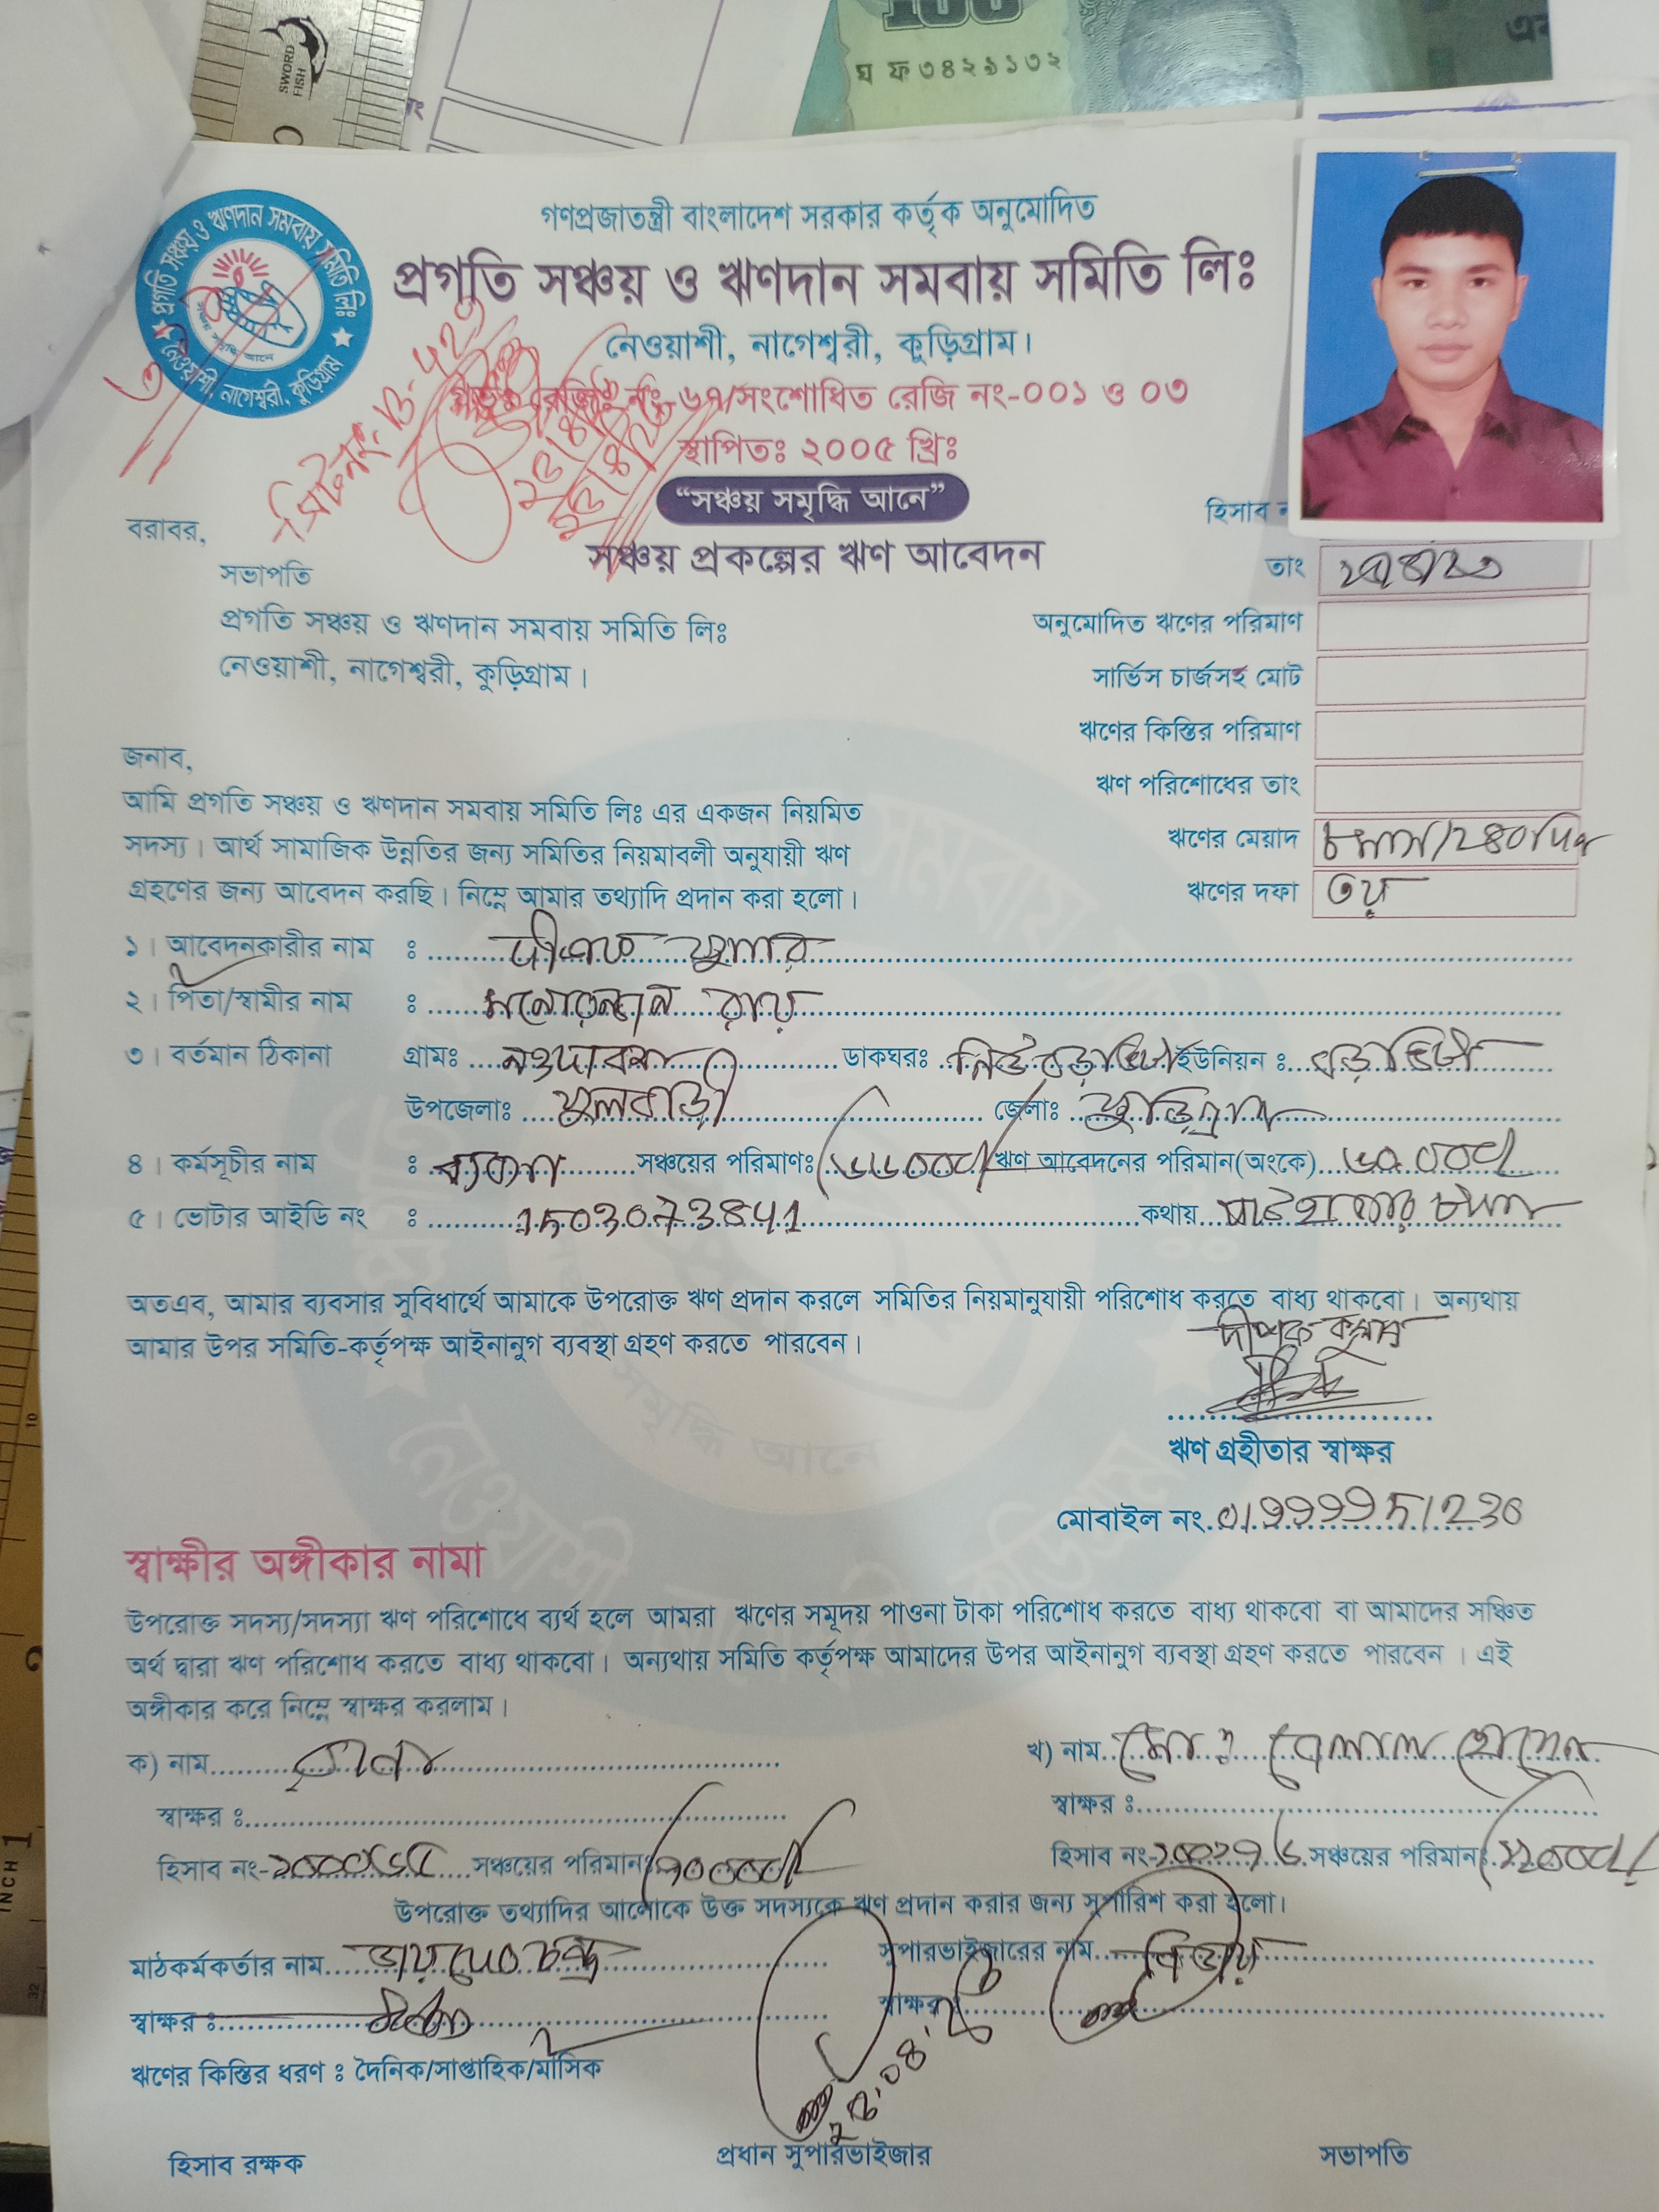 SWORD FISH
100
ঘ ফ ৩৪২৯১৩২
গণপ্রজাতন্ত্রী বাংলাদেশ সরকার কর্তৃক অনুমোদিত
প্রগতি সঞ্চয় ও ঋণদান সমবায় সমিতি লিঃ
নেওয়াশী, নাগেশ্বরী, কুড়িগ্রাম।
রেজিঃ নং-৬৭/সংশোধিত রেজি নং-০০১ ও ০৩
স্থাপিতঃ ২০০৫ খ্রিঃ
“সঞ্চয় সমৃদ্ধি আনে”
সঞ্চয় প্রকল্পের ঋণ আবেদন
প্রগতি সঞ্চয় ও ঋণদান সমবায় সমিতি লিঃ
সঞ্চয় সমৃদ্ধি আনে
নেওয়াশী, নাগেশ্বরী, কুড়িগ্রাম।
হিসাব
তাং
অনুমোদিত ঋণের পরিমাণ
সার্ভিস চার্জসহ মোট
ঋণের কিস্তির পরিমাণ
ঋণ পরিশোধের তাং
ঋণের মেয়াদ ৮ মাস/২৪০ দিন
ঋণের দফা ৩য়
বরাবর,
সভাপতি
প্রগতি সঞ্চয় ও ঋণদান সমবায় সমিতি লিঃ
নেওয়াশী, নাগেশ্বরী, কুড়িগ্রাম।
জনাব,
আমি প্রগতি সঞ্চয় ও ঋণদান সমবায় সমিতি লিঃ এর একজন নিয়মিত
সদস্য। আর্থ সামাজিক উন্নতির জন্য সমিতির নিয়মাবলী অনুযায়ী ঋণ
গ্রহণের জন্য আবেদন করছি। নিম্নে আমার তথ্যাদি প্রদান করা হলো।
১। আবেদনকারীর নাম : দীপক কুমার
২। পিতা/স্বামীর নাম : মনোরঞ্জন রায়
৩। বর্তমান ঠিকানা গ্রামঃ ডাকঘরঃ ইউনিয়ন : বড়ভিটা
উপজেলাঃ ফুলবাড়ী জেলাঃ কুড়িগ্রাম
৪। কর্মসূচীর নাম : সঞ্চয়ের পরিমাণঃ ঋণ আবেদনের পরিমান(অংকে) ৬০,০০০/
৫। ভোটার আইডি নং : 1503073841 কথায় ষাট হাজার টাকা
অতএব, আমার ব্যবসার সুবিধার্থে আমাকে উপরোক্ত ঋণ প্রদান করলে সমিতির নিয়মানুযায়ী পরিশোধ করতে বাধ্য থাকবো। অন্যথায়
আমার উপর সমিতি-কর্তৃপক্ষ আইনানুগ ব্যবস্থা গ্রহণ করতে পারবেন।
দীপক কুমার
ঋণ গ্রহীতার স্বাক্ষর
মোবাইল নং
স্বাক্ষীর অঙ্গীকার নামা
উপরোক্ত সদস্য/সদস্যা ঋণ পরিশোধে ব্যর্থ হলে আমরা ঋণের সমূদয় পাওনা টাকা পরিশোধ করতে বাধ্য থাকবো বা আমাদের সঞ্চিত
অর্থ দ্বারা ঋণ পরিশোধ করতে বাধ্য থাকবো। অন্যথায় সমিতি কর্তৃপক্ষ আমাদের উপর আইনানুগ ব্যবস্থা গ্রহণ করতে পারবেন । এই
অঙ্গীকার করে নিম্নে স্বাক্ষর করলাম।
ক) নাম খ) নাম মোঃ বেলাল হোসেন
স্বাক্ষর : স্বাক্ষর :
হিসাব নং- সঞ্চয়ের পরিমান হিসাব নং- সঞ্চয়ের পরিমান
উপরোক্ত তথ্যাদির আলোকে উক্ত সদস্যকে ঋণ প্রদান করার জন্য সুপারিশ করা হলো।
মাঠকর্মকর্তার নাম চন্দ্র সুপারভাইজারের নাম
স্বাক্ষর : স্বাক্ষর
ঋণের কিস্তির ধরণ : দৈনিক/সাপ্তাহিক/মাসিক
হিসাব রক্ষক প্রধান সুপারভাইজার সভাপতি
INCH 1